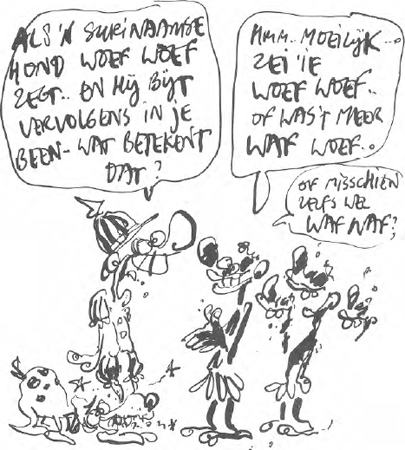 ALS 'N SURINAAMSE
HOND WOEF WOEF
ZEGT.. EN HIJ BIJT
VERVOLGENS IN JE
BEEN - WAT BETEKENT
DAT?
HMM.. MOEILIJK...
ZEI 'IE
WOEF WOEF..
OF WAS'T MEER
WAF WOEF..
OF MISSCHIEN
ZELFS WEL
WAF WAF?